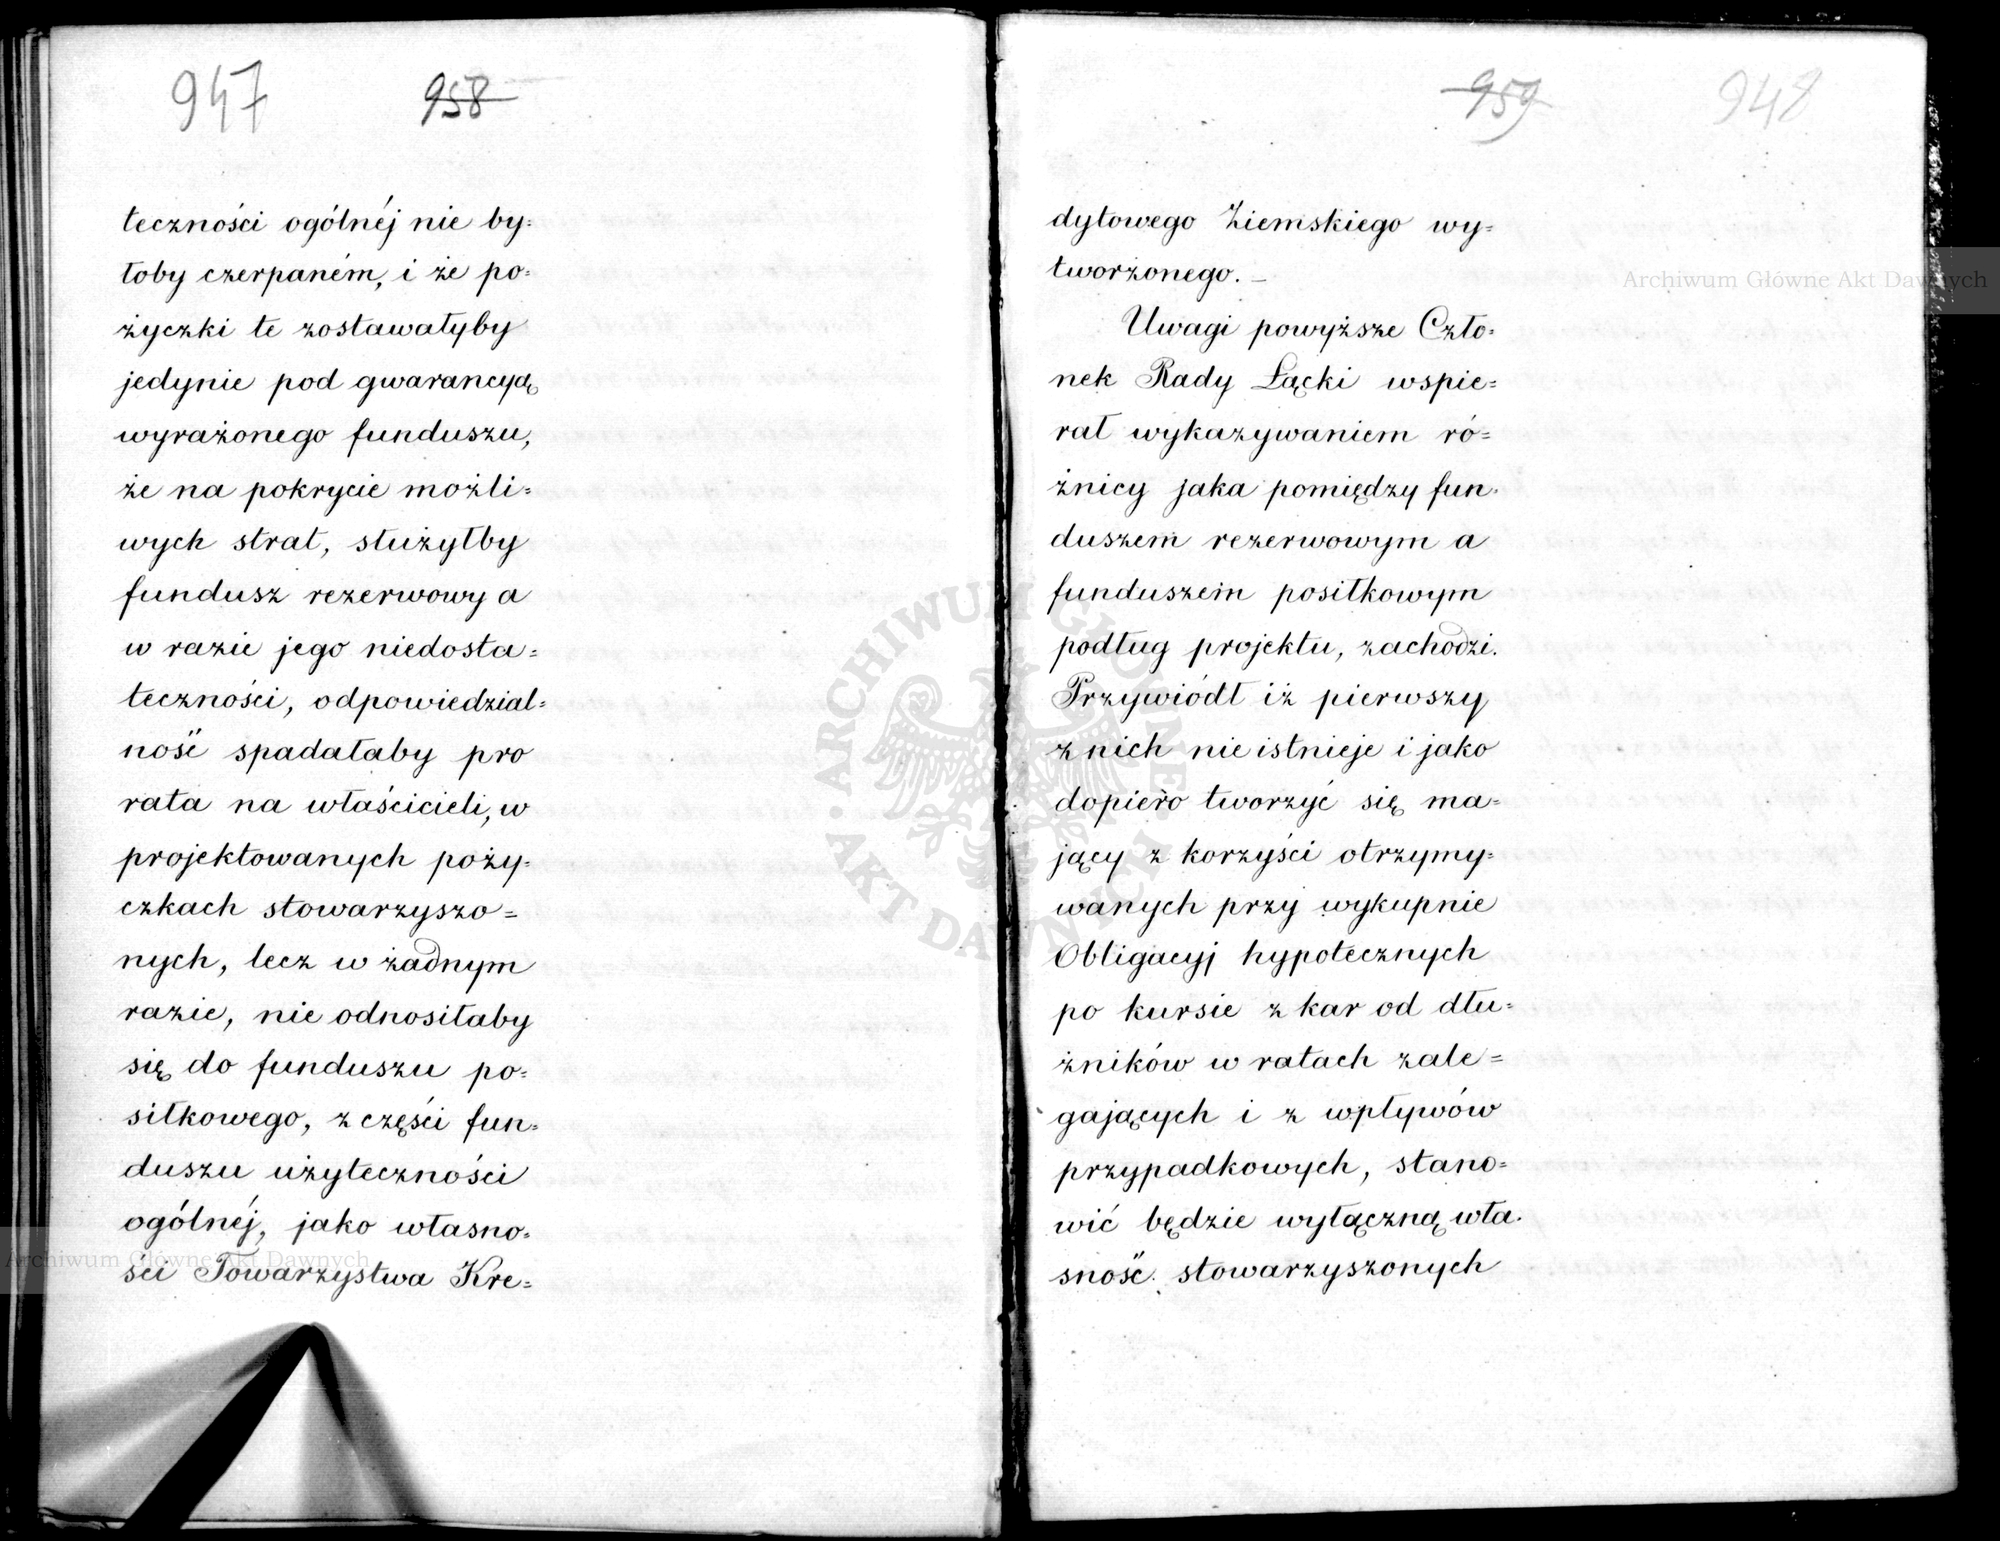 947 958
teczności ogólnéj nie by=
łoby czerpaném, i że po=
życzki te zostawałyby
jedynie pod gwarancyą
wyrażonego funduszu,
że na pokrycie możli=
wych strat, służyłby
fundusz rezerwowy a
w razie jego niedosta=
teczności, odpowiedzial=
ność spadałaby pro
rata na właścicieli, w
projektowanych poży=
czkach stowarzyszo=
nych, lecz w żadnym
razie, nie odnosiłaby
się do funduszu po=
siłkowego, z części fun=
duszu użyteczności
ogólnéj, jako własno=
ści Towarzystwa Kre=
959 948
dytowego Ziemskiego wy=
tworzonego. –
Uwagi powyższe Czło=
nek Rady Łącki wspie=
rał wykazywaniem ró=
żnicy jaka pomiędzy fun=
duszem rezerwowym a
funduszem posiłkowym
podług projektu, zachodzi.
Przywiódł iż pierwszy
z nich nie istnieje i jako
dopiero tworzyć się ma=
jący z korzyści otrzymy=
wanych przy wykupnie
Obligacyj hypotecznych
po kursie z kar od dłu=
żników w ratach zale=
gających i z wpływów
przypadkowych, stano=
wić będzie wyłączną wła=
sność stowarzyszonych
Archiwum Główne Akt Dawnych
Archiwum Główne Akt Dawnych
ARCHIWUM GŁÓWNE AKT DAWNYCH